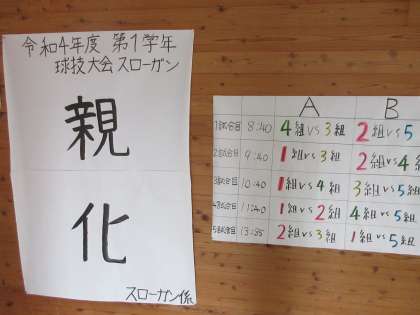 令和4年度 第1学年
球技大会スローガン
親
化
スローガン係
A B
1試合目 8:40 4組 vs 3組 2組 vs 5
2試合目 9:40 1組 vs 3組 2組 vs 4組
3試合目 10:40 1組 vs 4組 3組 vs 5組
4試合目 11:40 1組 vs 2組 4組 vs 5組
5試合目 13:35 2組 vs 3組 1組 vs 5組